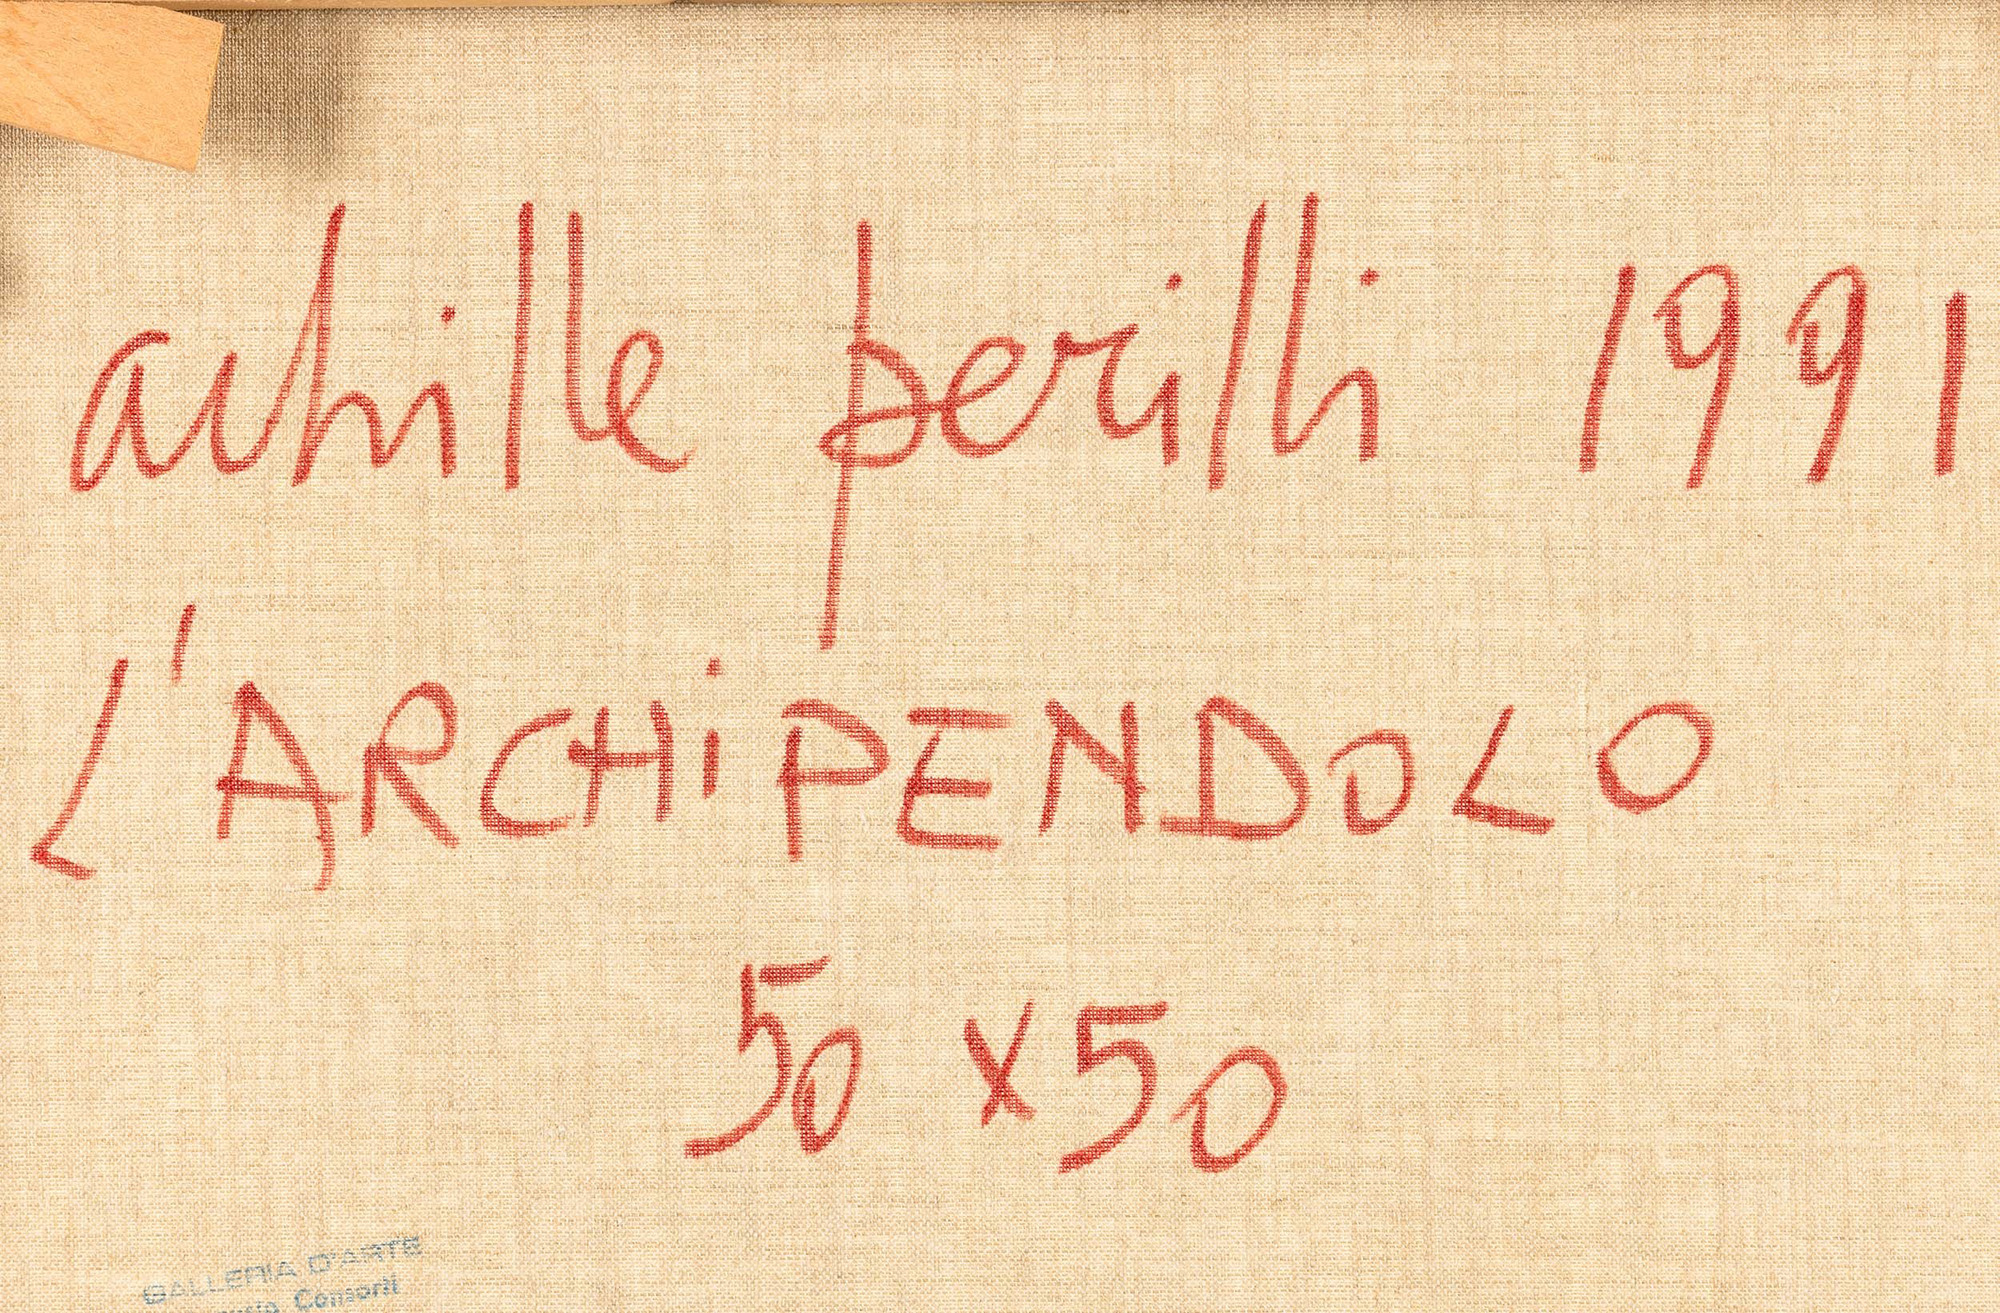 achille perilli 1991
L'ARCHiPENDOLO
50 x 50
GALLERIA D'ARTE
Consorti